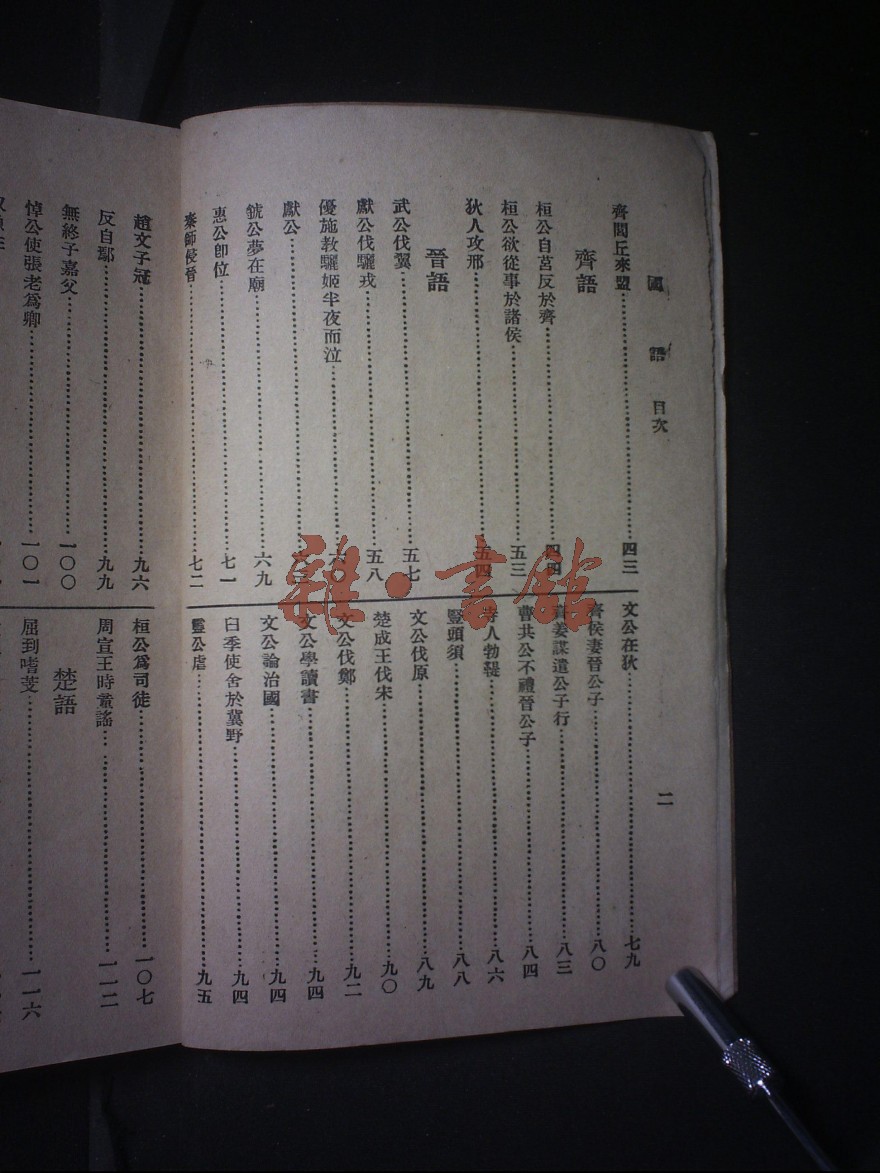 國語 目次
二
齊閭丘來盟 四三
齊語
桓公自莒反於齊 四四
桓公欲從事於諸侯 五三
狄人攻邢 五四
晉語
武公伐翼 五七
獻公伐驪戎 五八
優施教驪姬半夜而泣 六〇
獻公 六
虢公夢在廟 六九
惠公卽位 七一
秦師侵晉 七二
文公在狄 七九
齊侯妻晉公子 八〇
姜謀遣公子行 八三
曹共公不禮晉公子 八四
寺人勃鞮 八六
豎頭須 八八
文公伐原 八九
楚成王伐宋 九〇
文公伐鄭 九二
文公學讀書 九四
文公論治國 九四
臼季使舍於冀野 九四
靈公虐 九五
趙文子冠 九六
反自鄢 九九
無終子嘉父 一〇〇
悼公使張老爲卿 一〇一
桓公爲司徒 一〇七
周宣王時童謠 一一二
楚語
屈到嗜芰 一一六
雜·書館